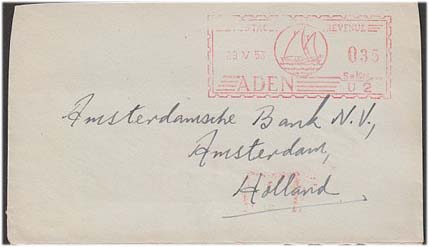 POSTAGE REVENUE
28 V 53
035
ADEN
U 2
Amsterdamsche Bank N.V.,
Amsterdam,
Holland